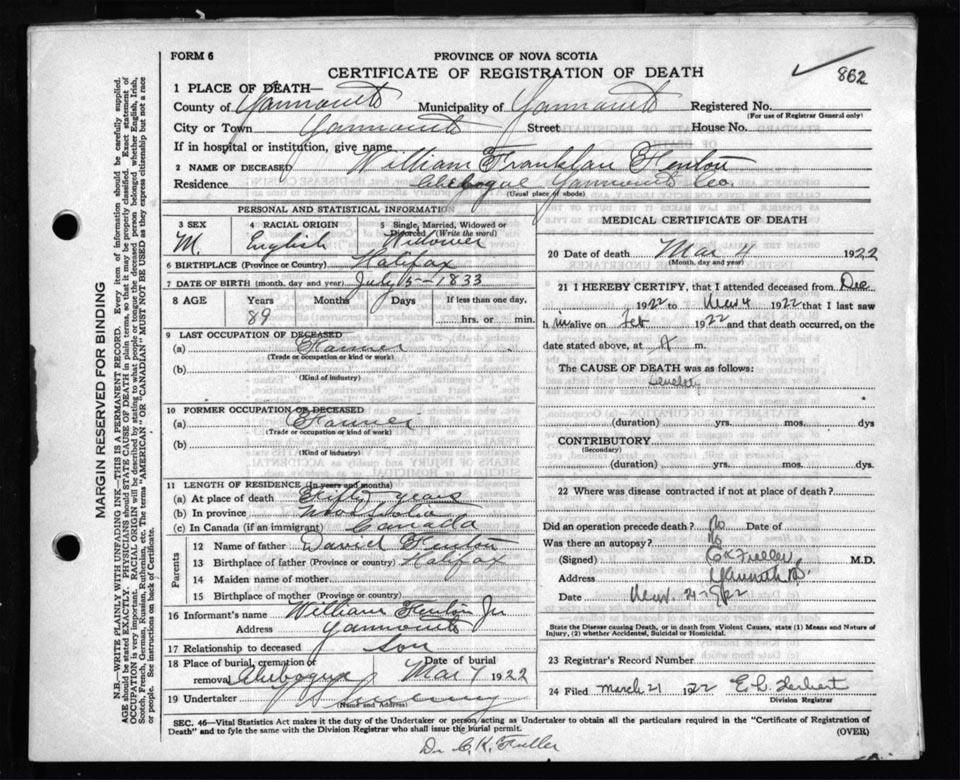 FORM 6
PROVINCE OF NOVA SCOTIA
CERTIFICATE OF REGISTRATION OF DEATH
862
1 PLACE OF DEATH—
County of Yarmouth Municipality of Yarmouth Registered No.
(For use of Registrar General only)
City or Town Yarmouth Street House No.
If in hospital or institution, give name
2 NAME OF DECEASED William Franklan Fenton
Residence Chebogue Yarmouth Co.
(Usual place of abode)
PERSONAL AND STATISTICAL INFORMATION
3 SEX 4 RACIAL ORIGIN 5 Single, Married, Widowed or Divorced (Write the word)
M. English Widower
6 BIRTHPLACE (Province or Country) Halifax
7 DATE OF BIRTH (month, day and year) July 5—1833
8 AGE Years Months Days If less than one day,
89 hrs. or min.
9 LAST OCCUPATION OF DECEASED
(a) Farmer
(Trade or occupation or kind or work)
(b)
(Kind of industry)
10 FORMER OCCUPATION OF DECEASED
(a) Farmer
(Trade or occupation or kind of work)
(b)
(Kind of industry)
11 LENGTH OF RESIDENCE (In years and months)
(a) At place of death Fifty years
(b) In province Nova Scotia
(c) In Canada (if an immigrant) Canada
Parents
12 Name of father David Fenton
13 Birthplace of father (Province or country) Halifax
14 Maiden name of mother
15 Birthplace of mother (Province or country)
16 Informant's name William Fenton Jr
Address Yarmouth
17 Relationship to deceased Son
18 Place of burial, cremation or removal Chebogue Date of burial Mar 7 1922
19 Undertaker
(Name and Address)
MEDICAL CERTIFICATE OF DEATH
20 Date of death Mar 4 1922
(Month, day and year)
21 I HEREBY CERTIFY, that I attended deceased from Dec
1922 to Mar 4 1922 that I last saw
h im alive on Feb 1922 and that death occurred, on the
date stated above, at A m.
The CAUSE OF DEATH was as follows:
Senility
(duration) yrs. mos. dys
CONTRIBUTORY
(Secondary)
(duration) yrs. mos. dys.
22 Where was disease contracted if not at place of death?
Did an operation precede death? No Date of
Was there an autopsy? No
(Signed) C K Fuller M.D.
Address Yarmouth NS
Date Mar.
State the Disease causing Death, or in death from Violent Causes, state (1) Means and Nature of Injury, (2) whether Accidental, Suicidal or Homicidal.
23 Registrar's Record Number
24 Filed March 21 1922 E. L. Herbert
Division Registrar
SEC. 46—Vital Statistics Act makes it the duty of the Undertaker or person acting as Undertaker to obtain all the particulars required in the "Certificate of Registration of
Death" and to fyle the same with the Division Registrar who shall issue the burial permit.
(OVER)
Dr C. K. Fuller
MARGIN RESERVED FOR BINDING
N.B.—WRITE PLAINLY WITH UNFADING INK—THIS IS A PERMANENT RECORD. Every item of information should be carefully supplied.
AGE should be stated EXACTLY. PHYSICIANS should STATE CAUSE OF DEATH in plain terms, so that it may be properly classified. Exact statement of
OCCUPATION is very important. RACIAL ORIGIN will be described by stating to what people or tongue the deceased person belonged whether English, Irish,
Scotch, French, German, Russian, Ruthenian, etc. The terms "AMERICAN" or "CANADIAN" MUST NOT BE USED as they express citizenship but not a race
or people. See instructions on back of Certificate.